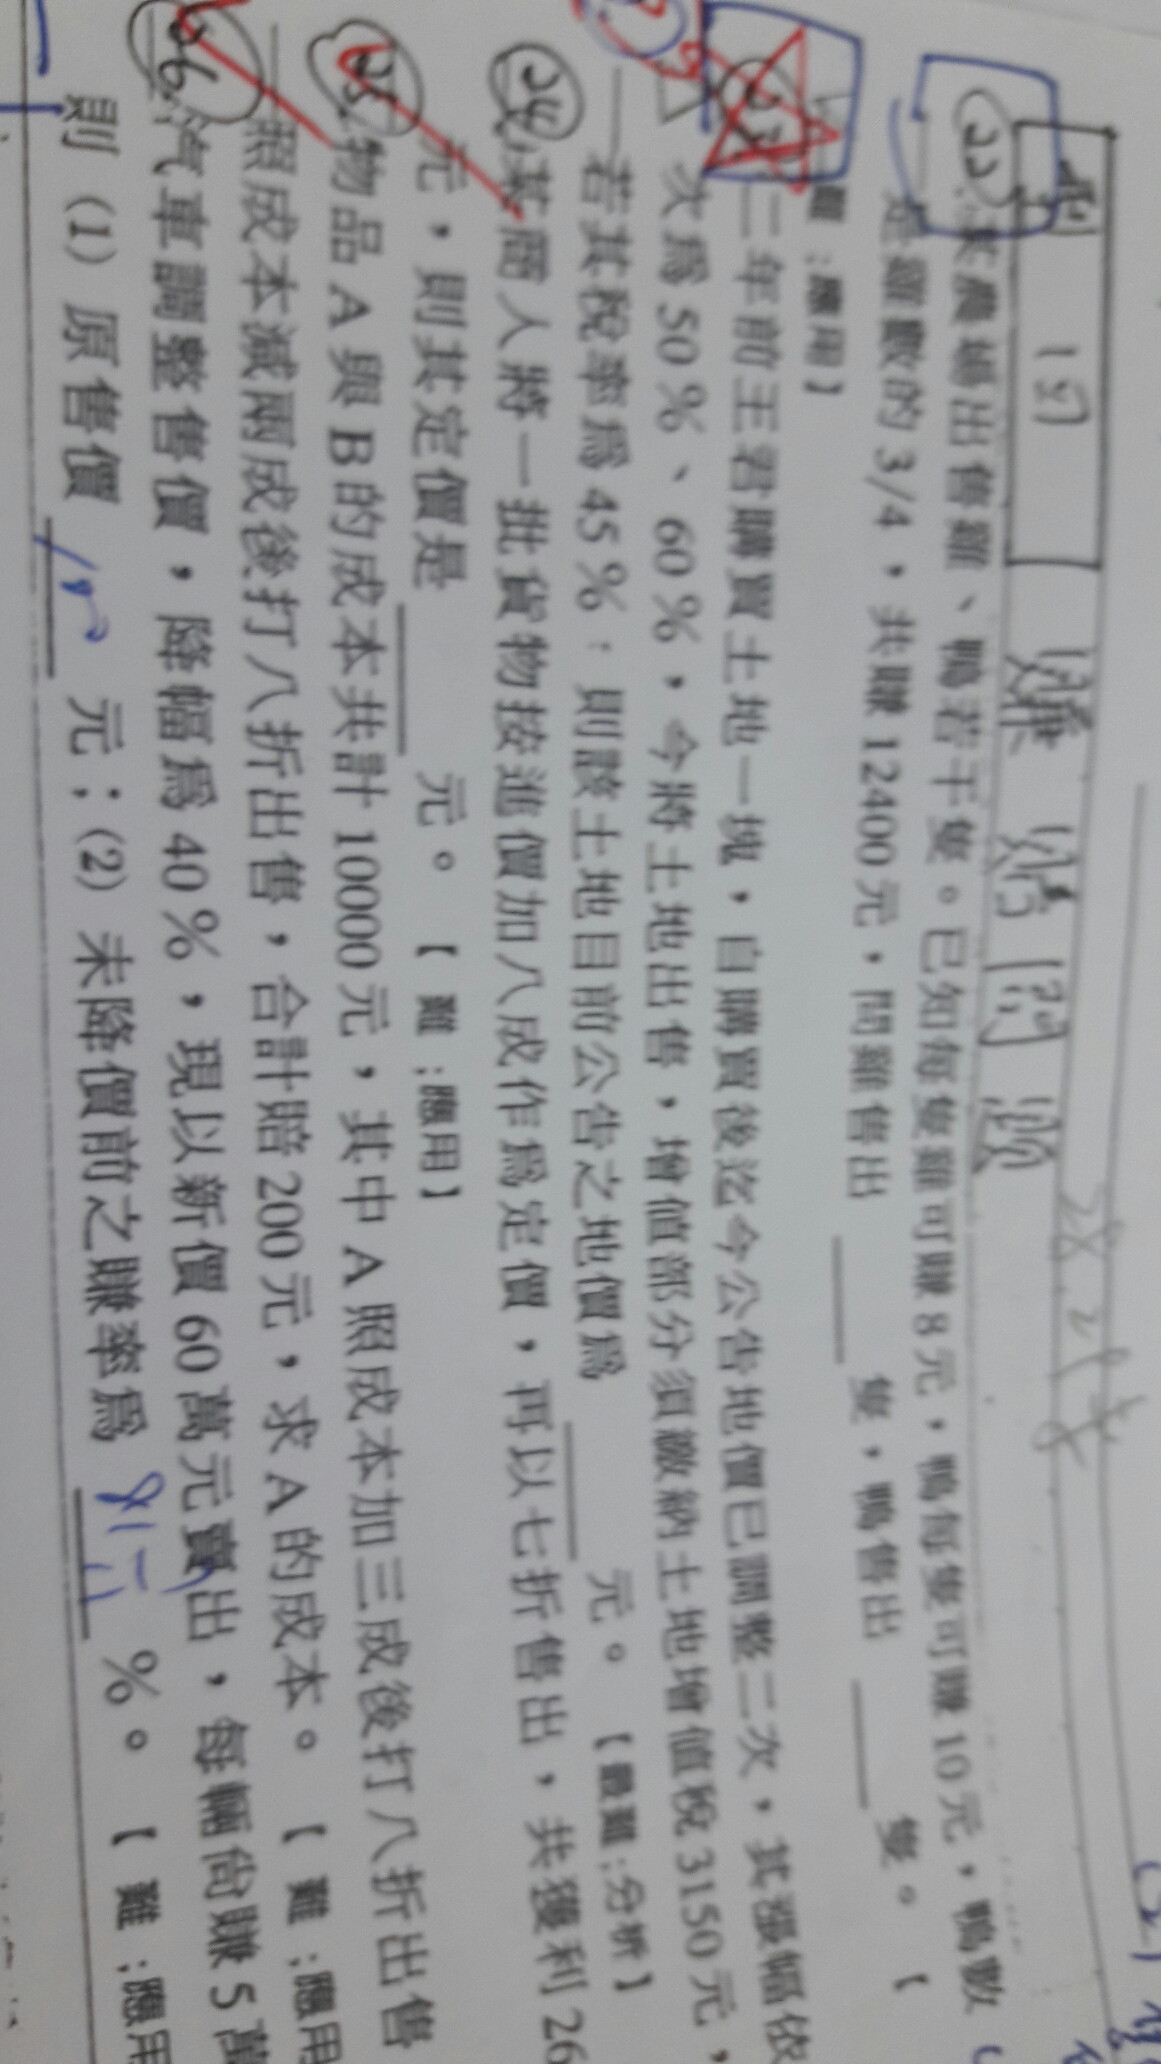 利 潤 賺 賠 問 題
22. 某農場出售雞、鴨若干隻。已知每隻雞可賺8元，鴨每隻可賺10元，鴨數
是雞數的3/4，共賺12400元，問雞售出____隻，鴨售出____隻。【
難:應用】
23. 二年前王君購買土地一塊，自購買後迄今公告地價已調整二次，其漲幅依
次為50%、60%，今將土地出售，增值部分須繳納土地增值稅3150元，
若其稅率為45%：則該土地目前公告之地價為____元。【最難:分析】
24. 某商人將一批貨物按進價加八成作為定價，再以七折售出，共獲利26
元，則其定價是____元。【難:應用】
25. 物品A與B的成本共計10000元，其中A照成本加三成後打八折出售
照成本減兩成後打八折出售，合計賠200元，求A的成本。【難:應用
26. 汽車調整售價，降幅為40%，現以新價60萬元賣出，每輛尚賺5萬
則（1）原售價 元；（2）未降價前之賺率為 %。【難:應用